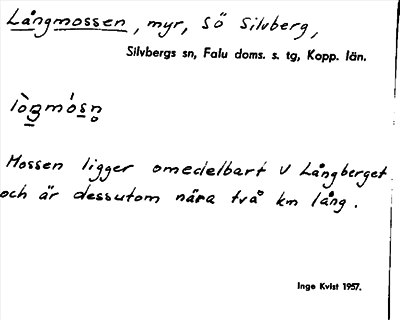 Långmossen, myr, SÖ Silvberg,
Silvbergs sn, Falu doms. s. tg, Kopp. län.
Mossen ligger omedelbart V Långberget
och är dessutom nära två km lång.
Inge Kvist 1957.